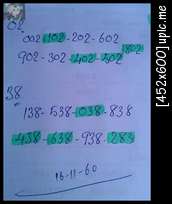 02
002-102-202-602
902-302-402-502
802
38
138-538-038-838
438-638-938-283
16-11-60
[452x600] upic.me